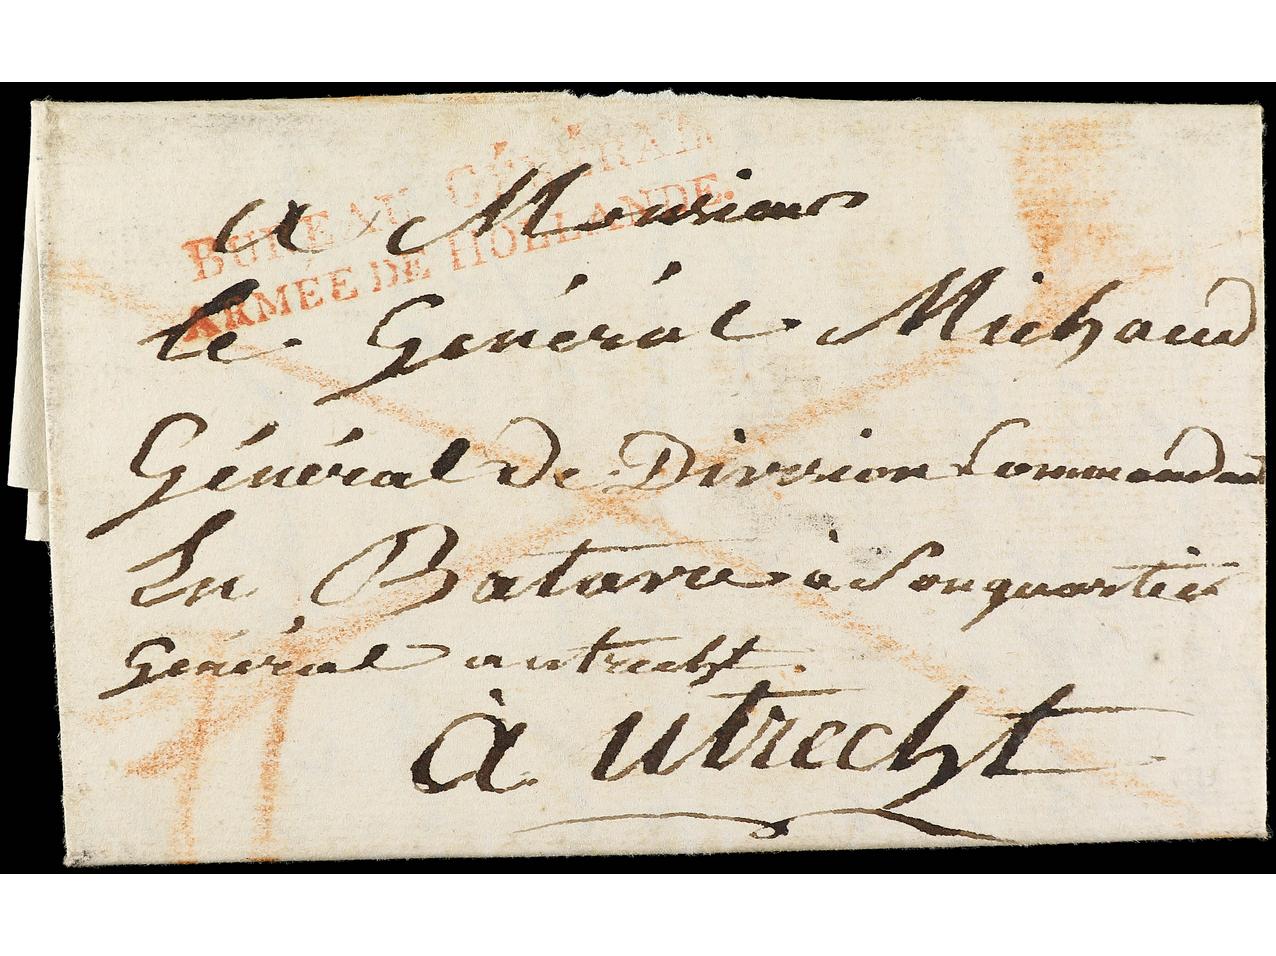 BUREAU GÉNÉRAL
ARMÉE DE HOLLANDE.
A Monsieur
le Général Michaud
Général de Division Commandant
En Batavie à Son quartier
Général a utrecht.
à utrecht